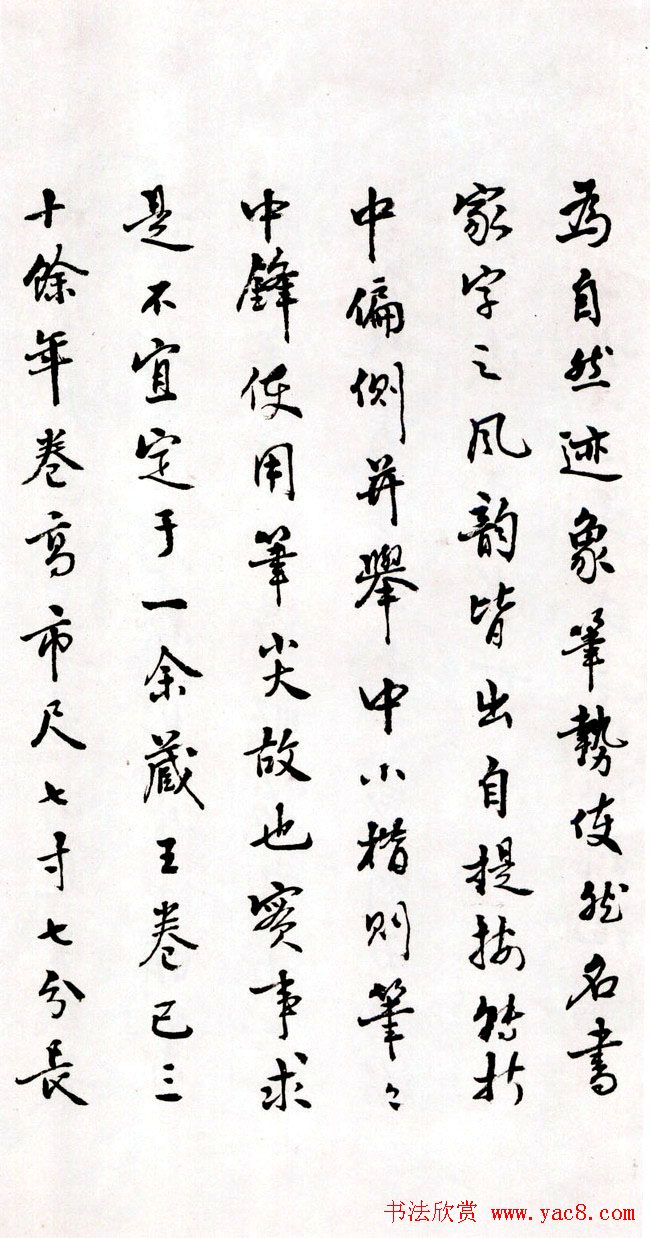 為自然迹象筆勢使然名書
家字之风韵皆出自提按转折
中偏侧并舉中小楷则筆々
中鋒使用筆尖故也實事求
是不宜定于一余藏王卷已三
十餘年卷高市尺七寸七分長
书法欣赏 www.yac8.com